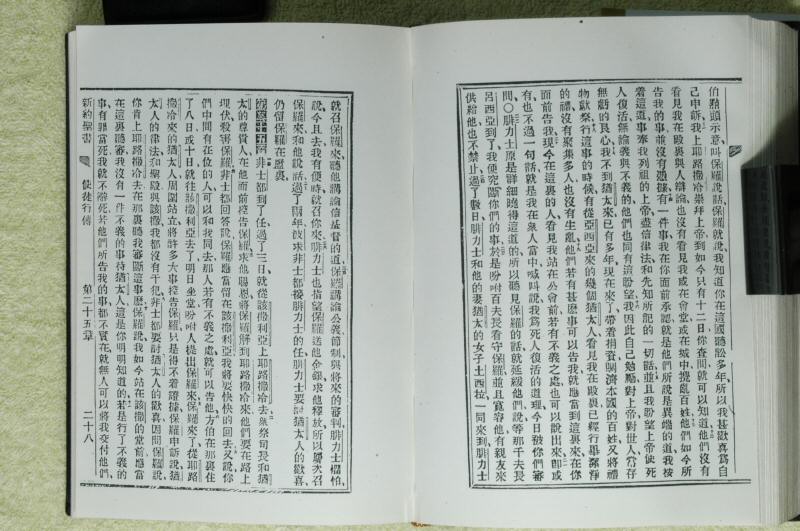 伯點頭示意叫保羅說話保羅就說我知道你在這國聽訟多年所以我甚歡喜爲自
己申訴我上耶路撒冷崇拜上帝到如今只有十二日你查問就可以知道他們沒有
看見我在殿裏與人辯論也沒有看見我或在會堂或在城中攪亂百姓他們如今所
告我的事並沒有憑據有一件事我在你面前承認就是他們所說是異端的道我按
着這道事奉我列祖的上帝盡信律法和先知所記的一切話並且我盼望上帝使死
人復活無論義與不義的他們也同有這盼望我因此自己勉勵對上帝對世人常存
無虧的良心我不到猶太來已有多年現在來了帶着捐資賙濟本國的百姓又將禮
物獻祭行這事的時候有從亞西亞來的幾個猶太人看見我在殿裏已經行畢潔淨
的禮沒有聚集多人也沒有生亂他們若有甚麽事可以告我就應當到這裏來在你
面前告我現今在這裏的人看見我站在公會前若有不義之處也可以說出來卽或
有也不過一句話就是我在衆人當中喊叫說我爲死人復活的道理今日被你們審
問〇腓力士原是詳細曉得這道的所以聽見保羅的話就延緩他們說等那千夫長
呂西亞到了我便究斷你們的事於是吩咐百夫長看守保羅並且寬容他有親友來
供給他也不禁止過了數日腓力士和他的妻猶太的女子土西拉一同來到腓力士
就召保羅來聽他講論信基督的道保羅講論公義節制與將來的審判腓力士懼怕
說今且去我有便時就召你來腓力士也指望保羅送他金銀求他釋放所以屢次召
保羅來和他說話過了兩年波求非士都接腓力士的任腓力士要討猶太人的歡喜
仍留保羅在監裏
第二十五章 非士都到了任過了三日就從該撒利亞上耶路撒冷去衆祭司長和猶
太的尊貴人在他面前控告保羅求他賜恩將保羅解到耶路撒冷來他們要在路上
埋伏殺害保羅非士都回答說保羅應當留在該撒利亞我將要快快的回去又說你
們中間有在位的人可以和我同去那人若有不義之處就可以告他方伯在那裏住
了八日或十日就往該撒利亞去了明日坐堂吩咐人提出保羅來保羅來了從耶路
撒冷來的猶太人周圍站立將許多大事控告保羅只是得不着證據保羅申訴說猶
太人的律法和聖殿與該撒我都沒有干犯非士都要討猶太人的歡喜因問保羅說
你肯上耶路撒冷去在那裏聽我審斷這事麽保羅說我如今站在該撒的堂前應當
在這裏聽審我沒有一件不義的事待猶太人這是你明明知道的若是行了不義的
事有罪當死我就不辭死若他們所告我的事都不實在就無人可以將我交付他們
新約聖書 使徒行傳 第二十五章 二十八